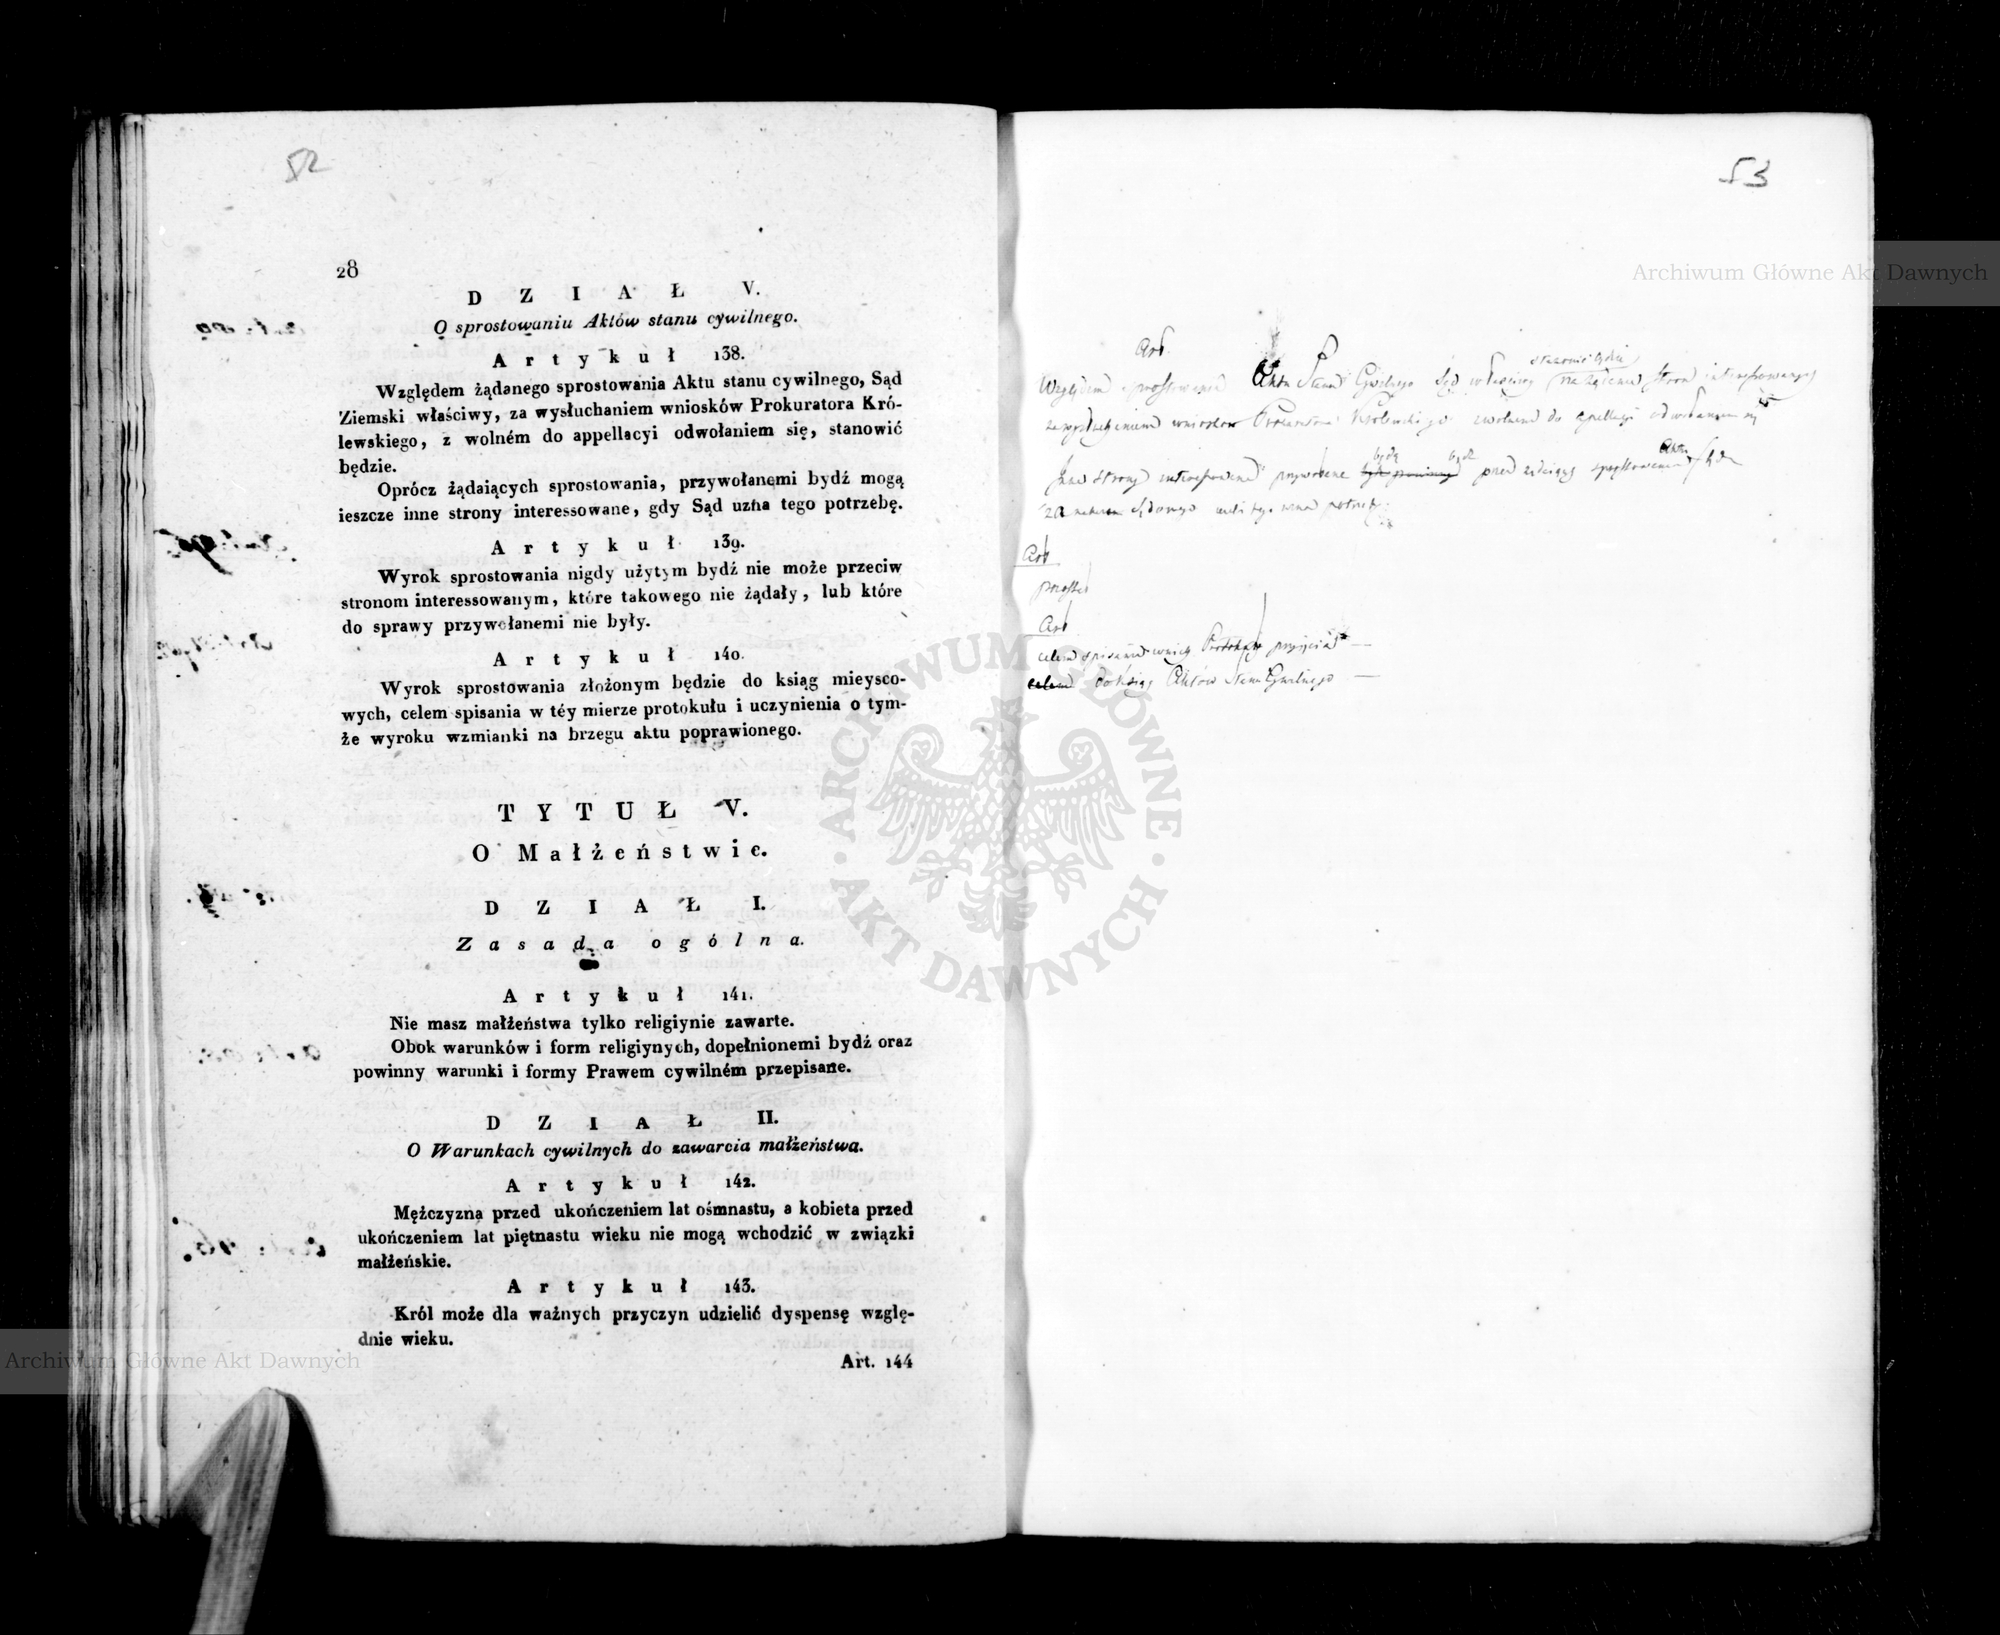 52
28
DZIAŁ V.
O sprostowaniu Aktów stanu cywilnego.
Artykuł 138.
Względem żądanego sprostowania Aktu stanu cywilnego, Sąd
Ziemski właściwy, za wysłuchaniem wniosków Prokuratora Kró-
lewskiego, z wolném do appellacyi odwołaniem się, stanowić
będzie.
Oprócz żądaiących sprostowania, przywołanemi bydź mogą
ieszcze inne strony interessowane, gdy Sąd uzna tego potrzebę.
Artykuł 139.
Wyrok sprostowania nigdy użytym bydź nie może przeciw
stronom interessowanym, które takowego nie żądały, lub które
do sprawy przywołanemi nie były.
Artykuł 140.
Wyrok sprostowania złożonym będzie do ksiąg mieysco-
wych, celem spisania w téy mierze protokułu i uczynienia o tym-
że wyroku wzmianki na brzegu aktu poprawionego.
TYTUŁ V.
O Małżeństwie.
DZIAŁ I.
Zasada ogólna.
Artykuł 141.
Nie masz małżeństwa tylko religiynie zawarte.
Obok warunków i form religiynych, dopełnionemi bydź oraz
powinny warunki i formy Prawem cywilném przepisane.
DZIAŁ II.
O Warunkach cywilnych do zawarcia małżeństwa.
Artykuł 142.
Mężczyzna przed ukończeniem lat ośmnastu, a kobieta przed
ukończeniem lat piętnastu wieku nie mogą wchodzić w związki
małżeńskie.
Artykuł 143.
Król może dla ważnych przyczyn udzielić dyspensę wzglę-
dnie wieku.
Art. 144
53
Art.
Względem sprostowania Aktu Stanu Cywilnego Sąd właściwy na żądanie stron interessowanych
wniosków Prokuratora Królewskiego z wolném do apellacyi odwołaniem się
Inne strony interessowane
Art
Art
celem spisania
do ksiąg Aktów Stanu Cywilnego
Archiwum Główne Akt Dawnych
ARCHIWUM GŁÓWNE · AKT DAWNYCH ·
Archiwum Główne Akt Dawnych